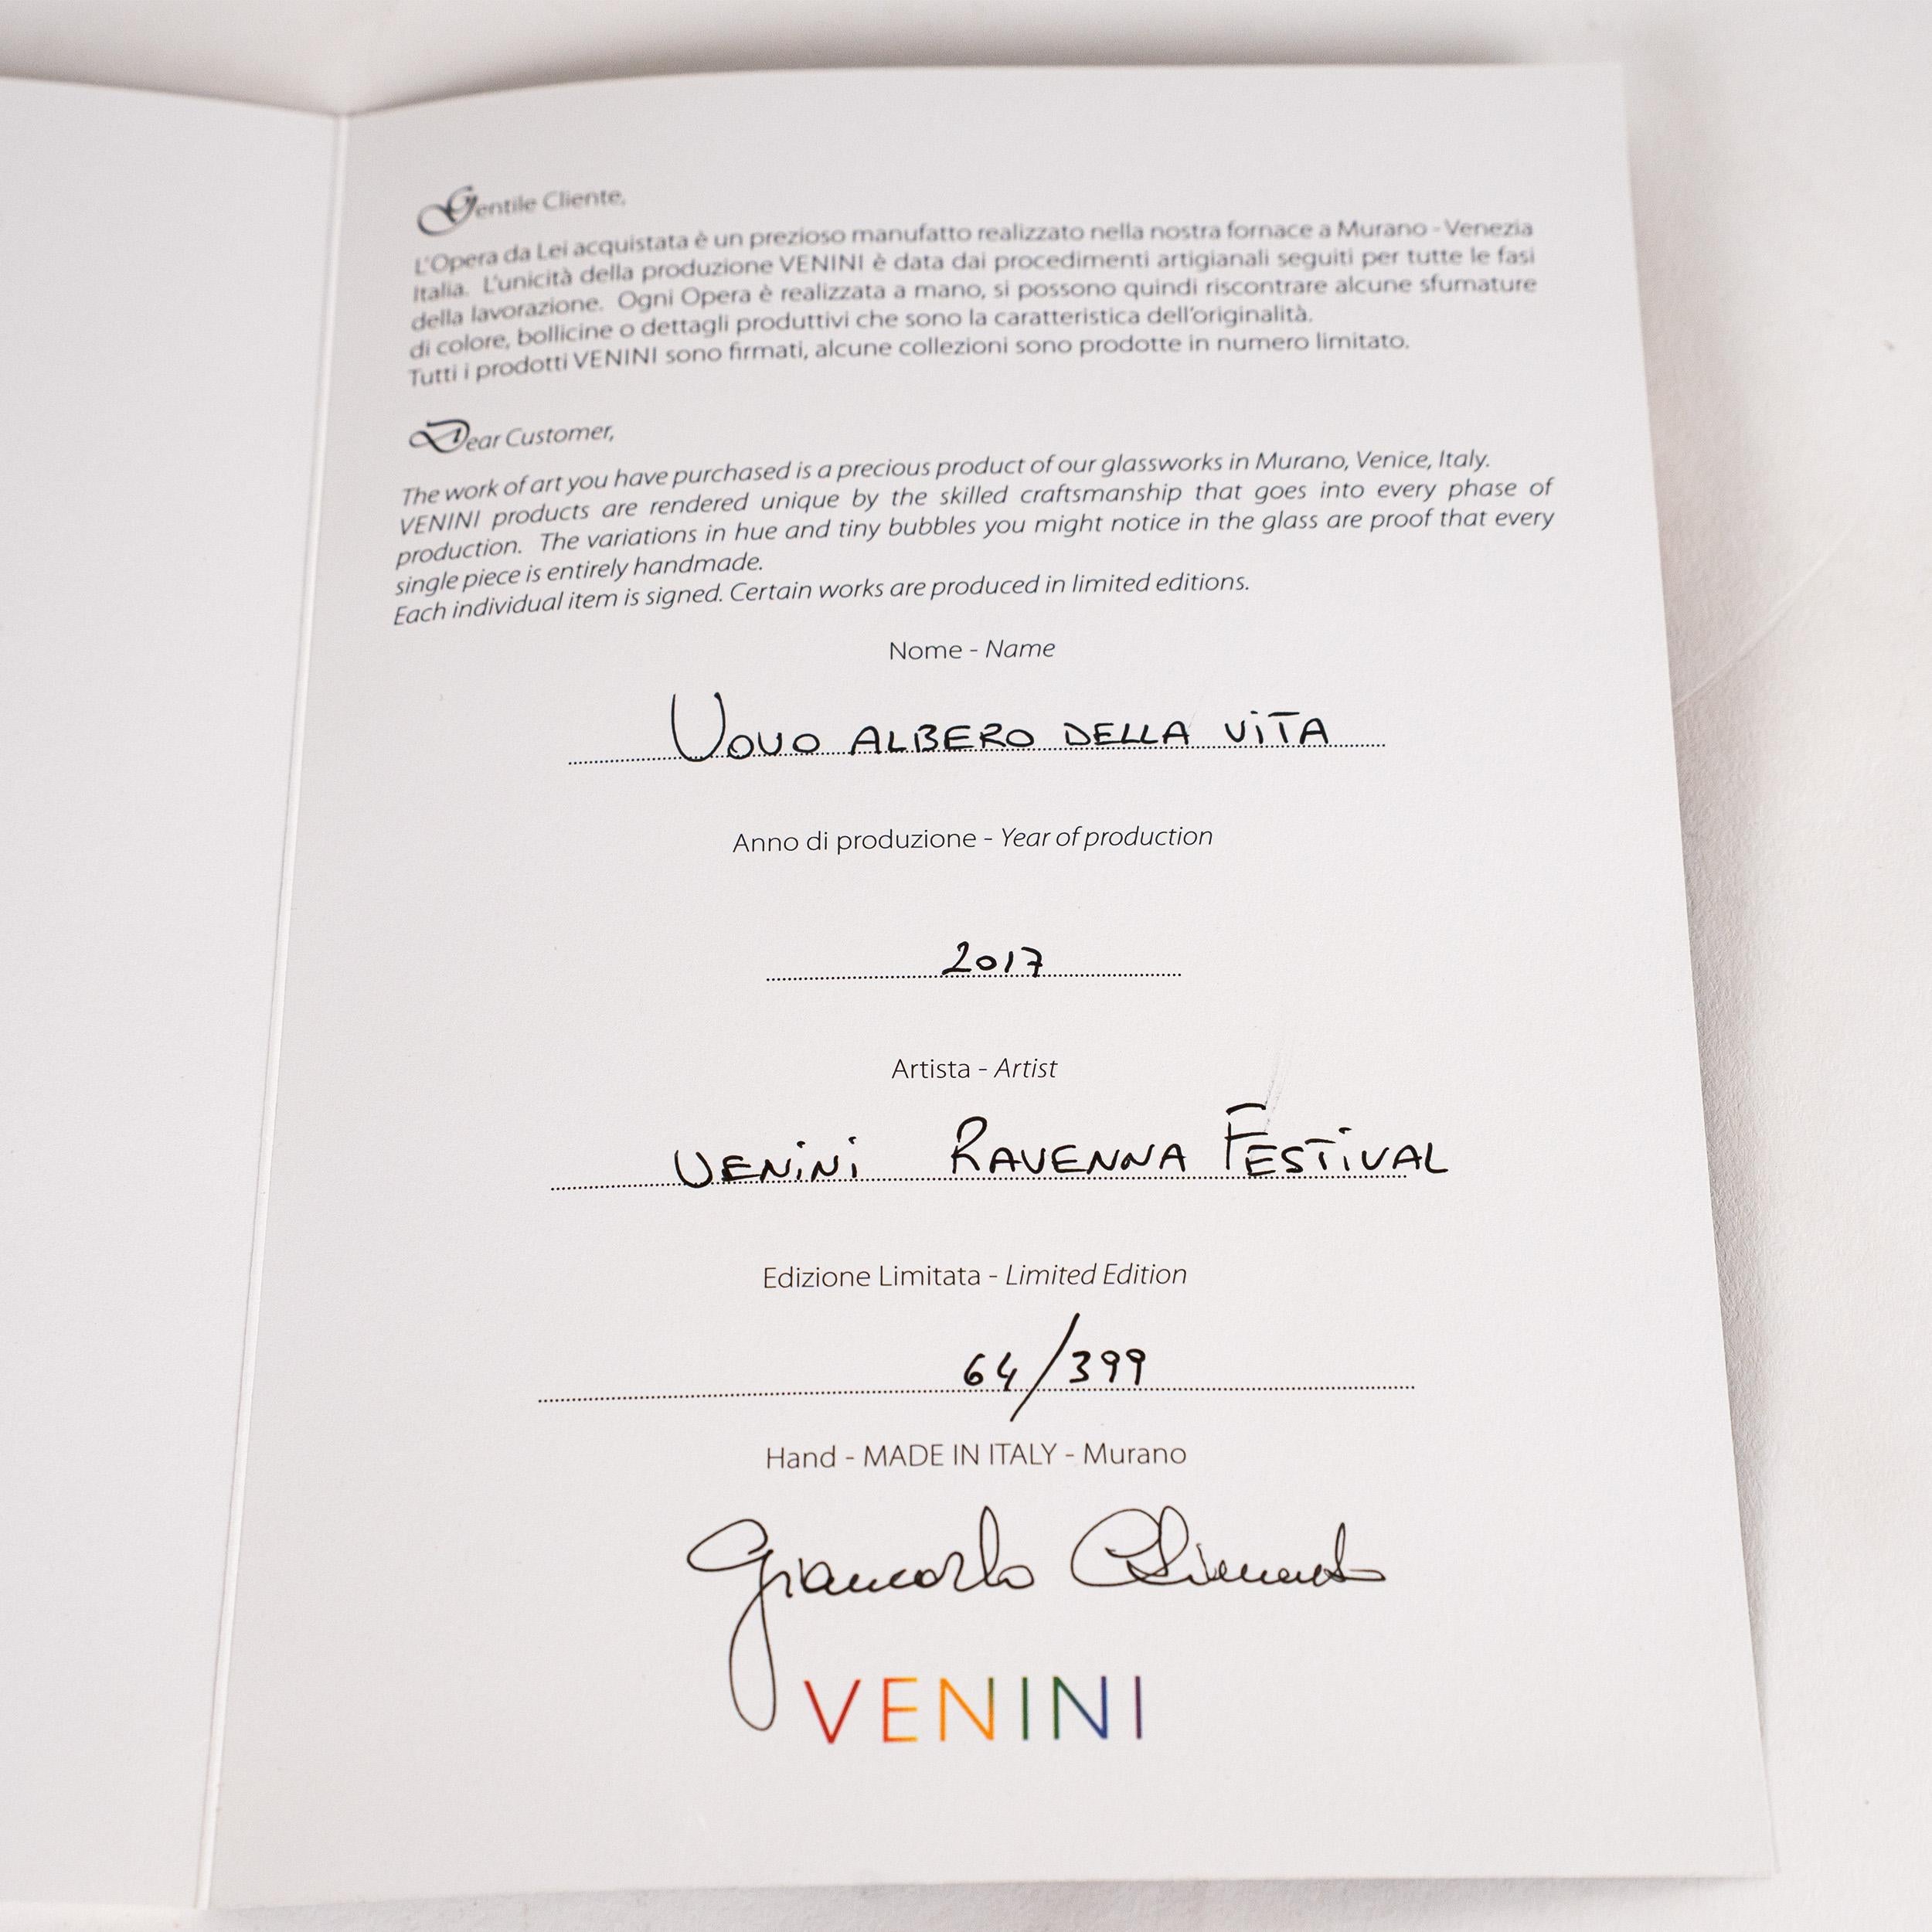 Gentile Cliente,
L'Opera da Lei acquistata è un prezioso manufatto realizzato nella nostra fornace a Murano - Venezia
Italia. L'unicità della produzione VENINI è data dai procedimenti artigianali seguiti per tutte le fasi
della lavorazione. Ogni Opera è realizzata a mano, si possono quindi riscontrare alcune sfumature
di colore, bollicine o dettagli produttivi che sono la caratteristica dell'originalità.
Tutti i prodotti VENINI sono firmati, alcune collezioni sono prodotte in numero limitato.
Dear Customer,
The work of art you have purchased is a precious product of our glassworks in Murano, Venice, Italy.
VENINI products are rendered unique by the skilled craftsmanship that goes into every phase of
production. The variations in hue and tiny bubbles you might notice in the glass are proof that every
single piece is entirely handmade.
Each individual item is signed. Certain works are produced in limited editions.
Nome - Name
UOVO ALBERO DELLA ViTA
Anno di produzione - Year of production
2017
Artista - Artist
VENiNi RAVENNA FESTiVAL
Edizione Limitata - Limited Edition
64/399
Hand - MADE IN ITALY - Murano
Giancarlo
VENINI